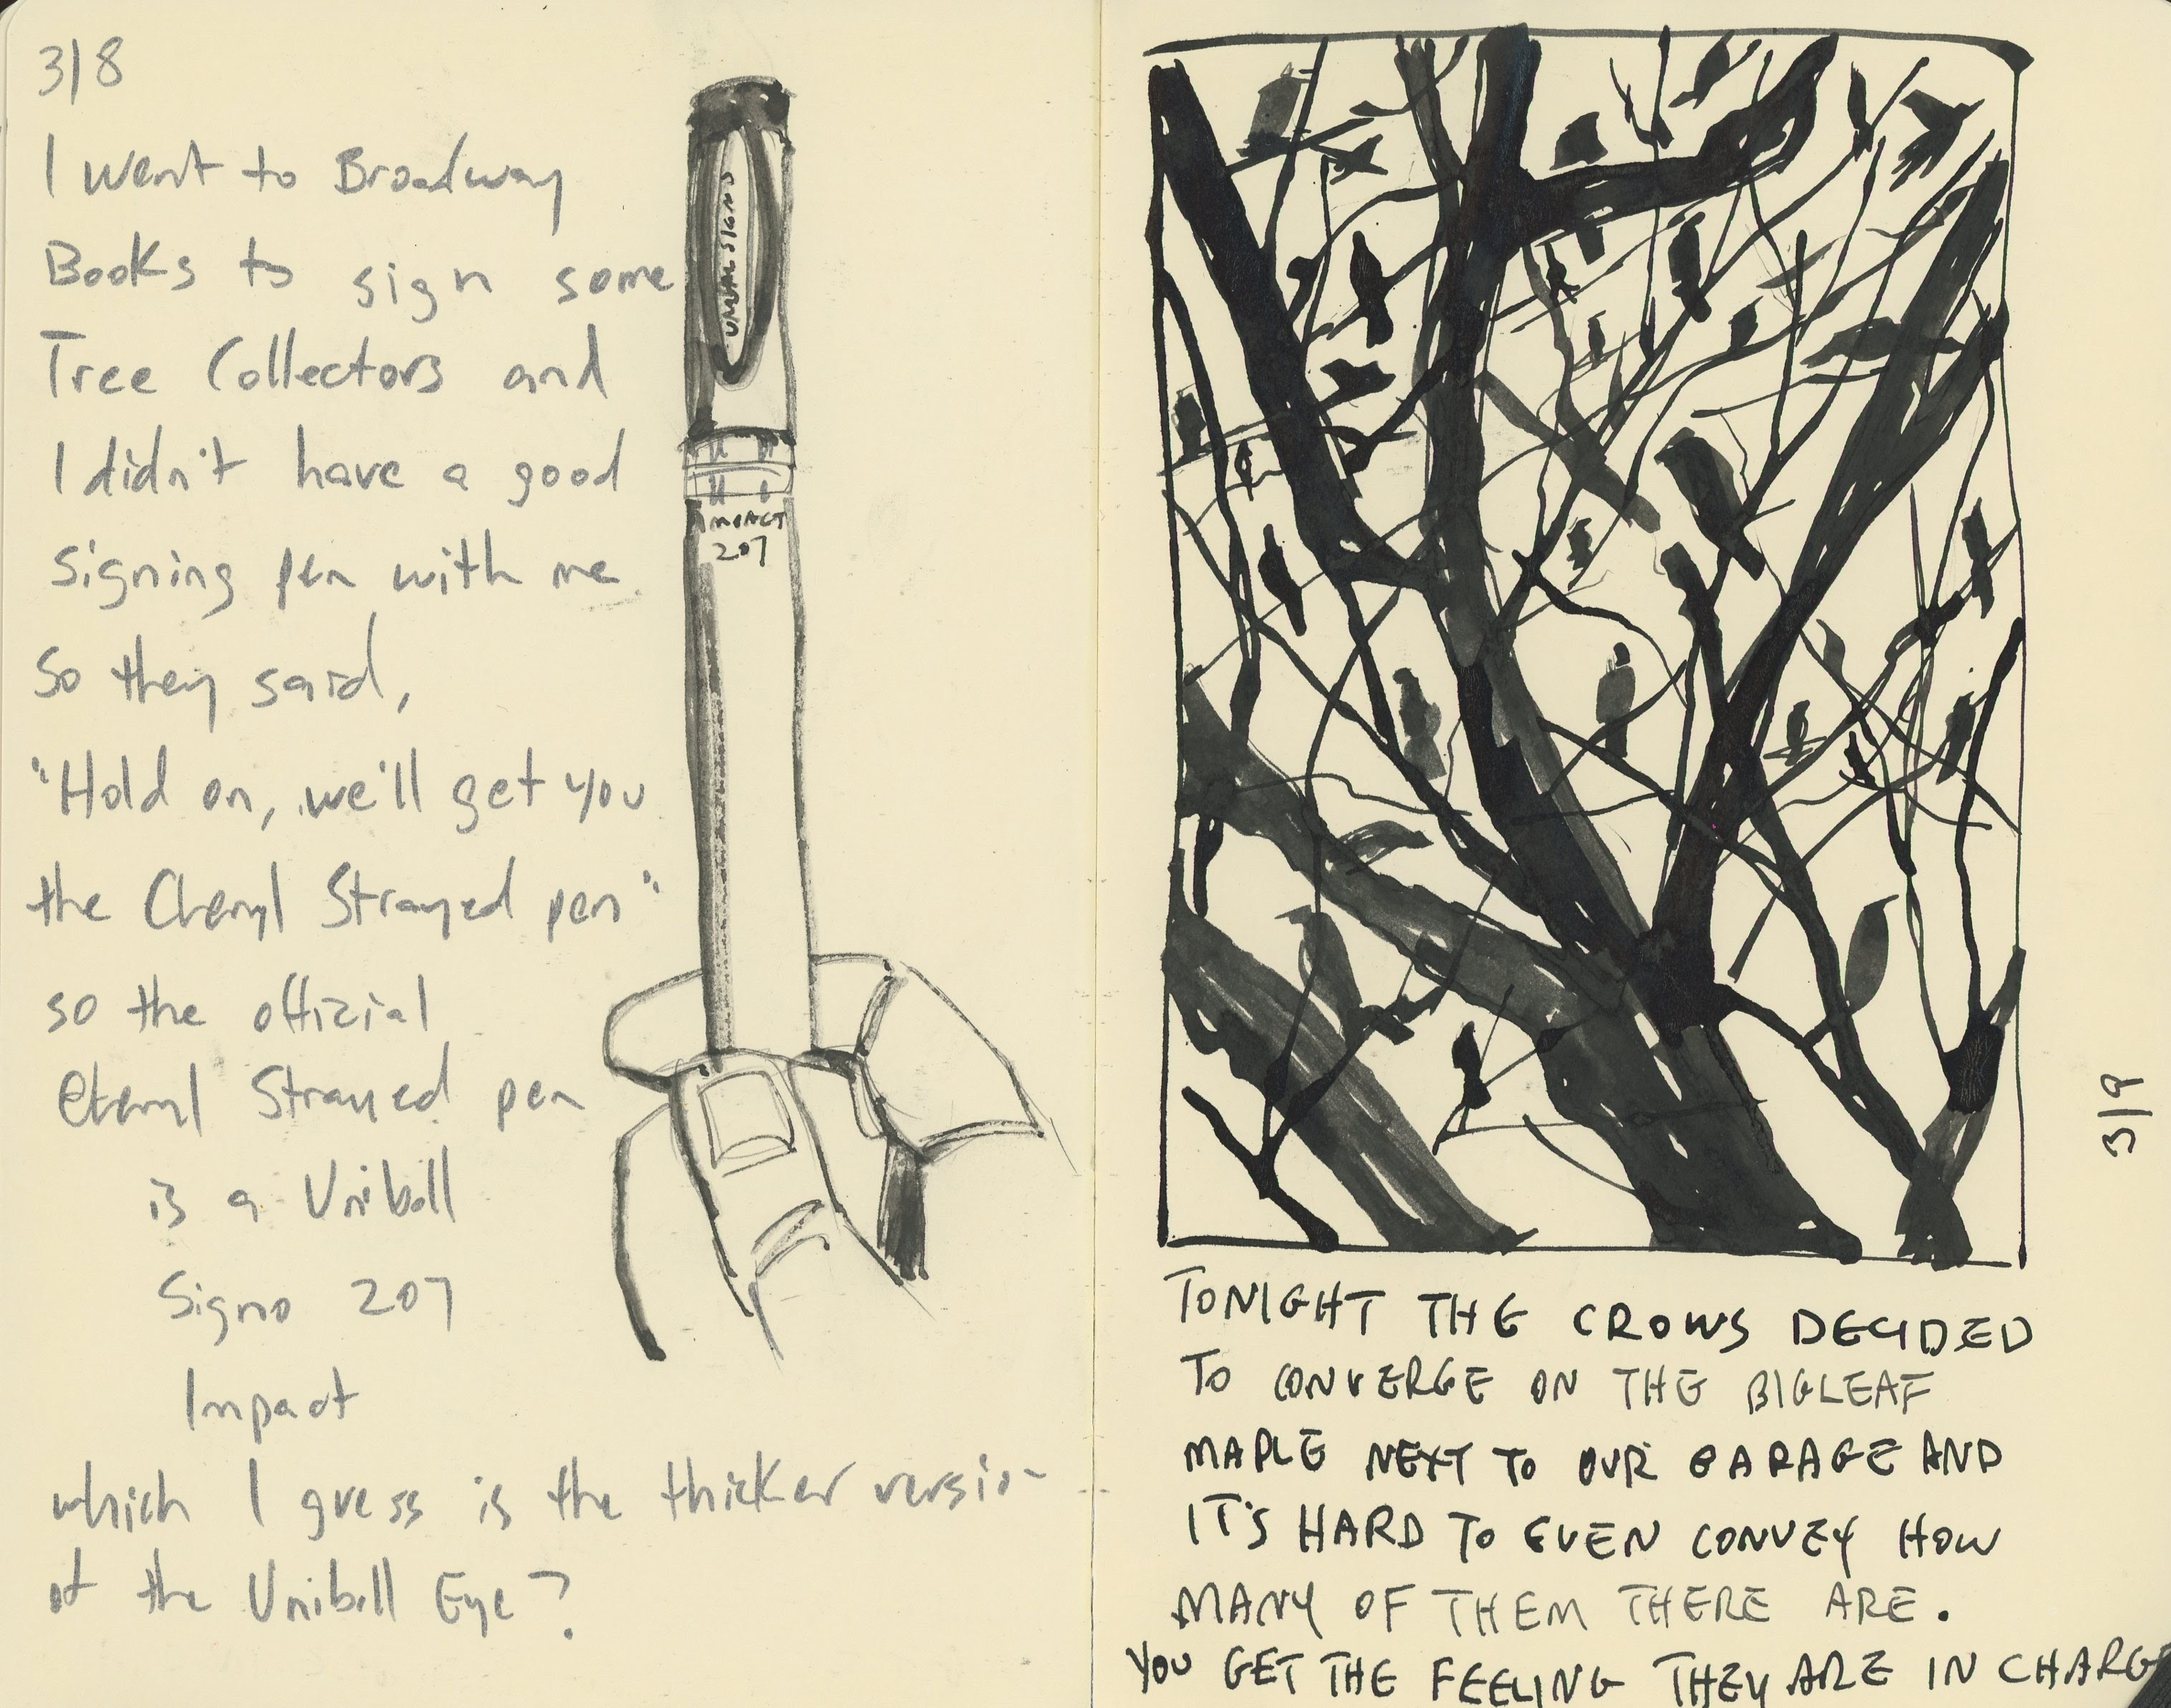 3/8
I went to Broadway
Books to sign some
Tree Collectors and
I didn't have a good
signing pen with me
so they said,
"Hold on, we'll get you
the Cheryl Strayed pen"
so the official
Cheryl Strayed pen
is a Uniball
Signo 207
Impact
which I guess is the thicker version
of the Uniball Eye?
IMPACT
207
TONIGHT THE CROWS DECIDED
TO CONVERGE ON THE BIGLEAF
MAPLE NEXT TO OUR GARAGE AND
IT'S HARD TO EVEN CONVEY HOW
MANY OF THEM THERE ARE.
YOU GET THE FEELING THEY ARE IN CHARGE
3/9